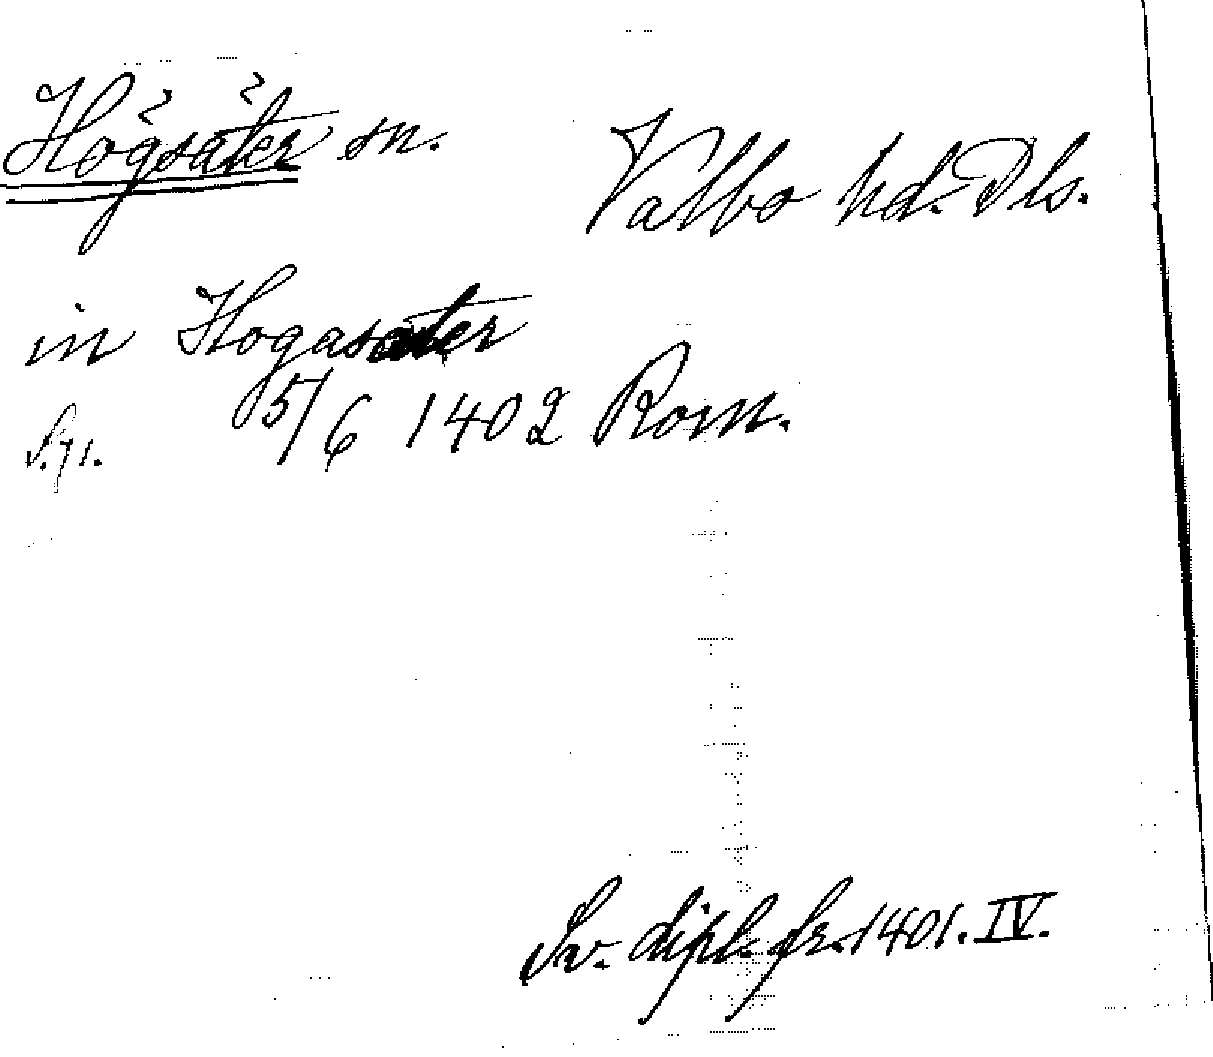 Högsäter sn. Valbo hd. Dls.
in Hogasater
15/6 1402 Rom.
S. 71.
Sv. dipl. fr. 1401. IV.